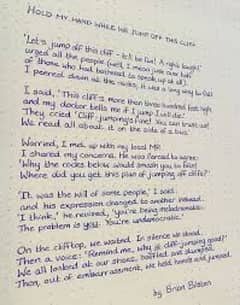 HOLD MY HAND WHILE WE JUMP OFF THIS CLIFF
'Let's jump off this cliff - it'll be fun! A right laugh!'
urged all the people (well, I mean just over half
of those who had bothered to speak up at all).
I peered down at the rocks; it was a long way to fall.
I said, 'This cliff's more than three hundred feet high
and my doctor tells me if I jump I will die.'
They cried 'Cliff-jumping's fine! You can trust us!
We read all about it on the side of a bus.'
Worried, I met up with my local MP.
I shared my concerns. He was forced to agree:
'Why the rocks below would smash you to bits!
Where did you get this plan of jumping off cliffs?'
'It was the will of some people,' I said
and his expression changed to another instead.
'I think,' he revised, 'you're being melodramatic.
The problem is you. You're undemocratic.'
On the clifftop, we waited. In silence we stood.
Then a voice: 'Remind me, why is cliff-jumping good?'
We all looked at our shoes, baffled and stumped.
Then, out of embarrassment, we held hands and jumped.
by Brian Bilston